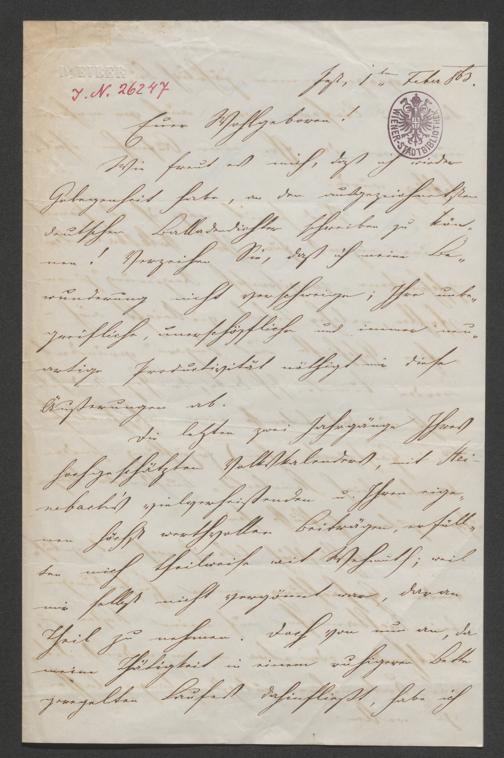 J. N. 26247
WIENER-STADTBIBLIOTHEK
Euer Wohlgeboren!
Wie freut es mich, daß ich wieder
Gelegenheit habe, an den ausgezeichnetsten
deutschen Balladendichter schreiben zu kön-
nen! Verzeihen Sie, daß ich meine Be-
wunderung nicht verschweige; Ihre unbe-
greifliche, unerschöpfliche und immer neu-
artige Produktivität nöthigt mir diese
Äußerungen ab.
Die letzten zwei Jahrgänge Ihres
hochgeschätzten Volkskalenders, mit
vielverheißenden u. Ihren eige-
nen höchst werthvollen Beiträgen, erfüll-
ten mich theilweise mit Wehmuth; weil
mir selbst nicht vergönnt war, daran
Theil zu nehmen. Doch von nun an, da
meine Thätigkeit in einem ruhigeren Bette
geregelten Laufes dahinfließt, habe ich